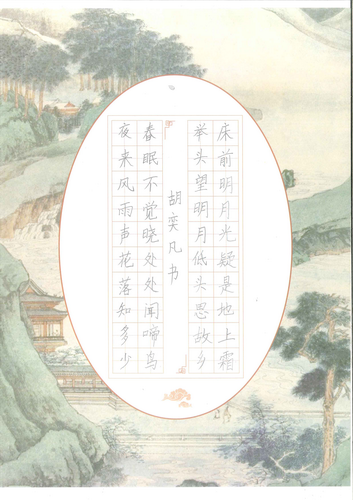 床前明月光疑是地上霜
举头望明月低头思故乡
胡奕凡书
春眠不觉晓处处闻啼鸟
夜来风雨声花落知多少